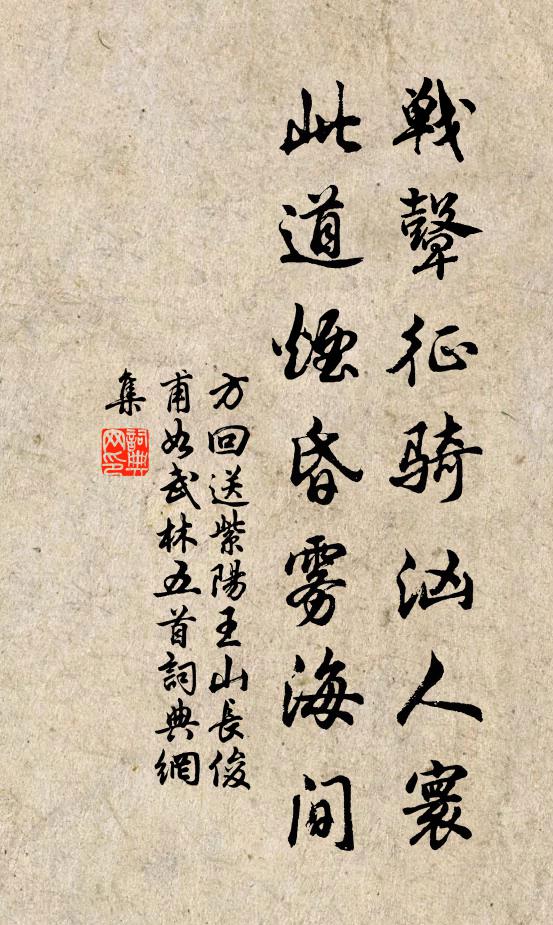 戦鼙征骑汹人寰
此道煙昏雾海间
方回送紫陽王山長俊
甫如武林五首詞典網
集
詞典網印